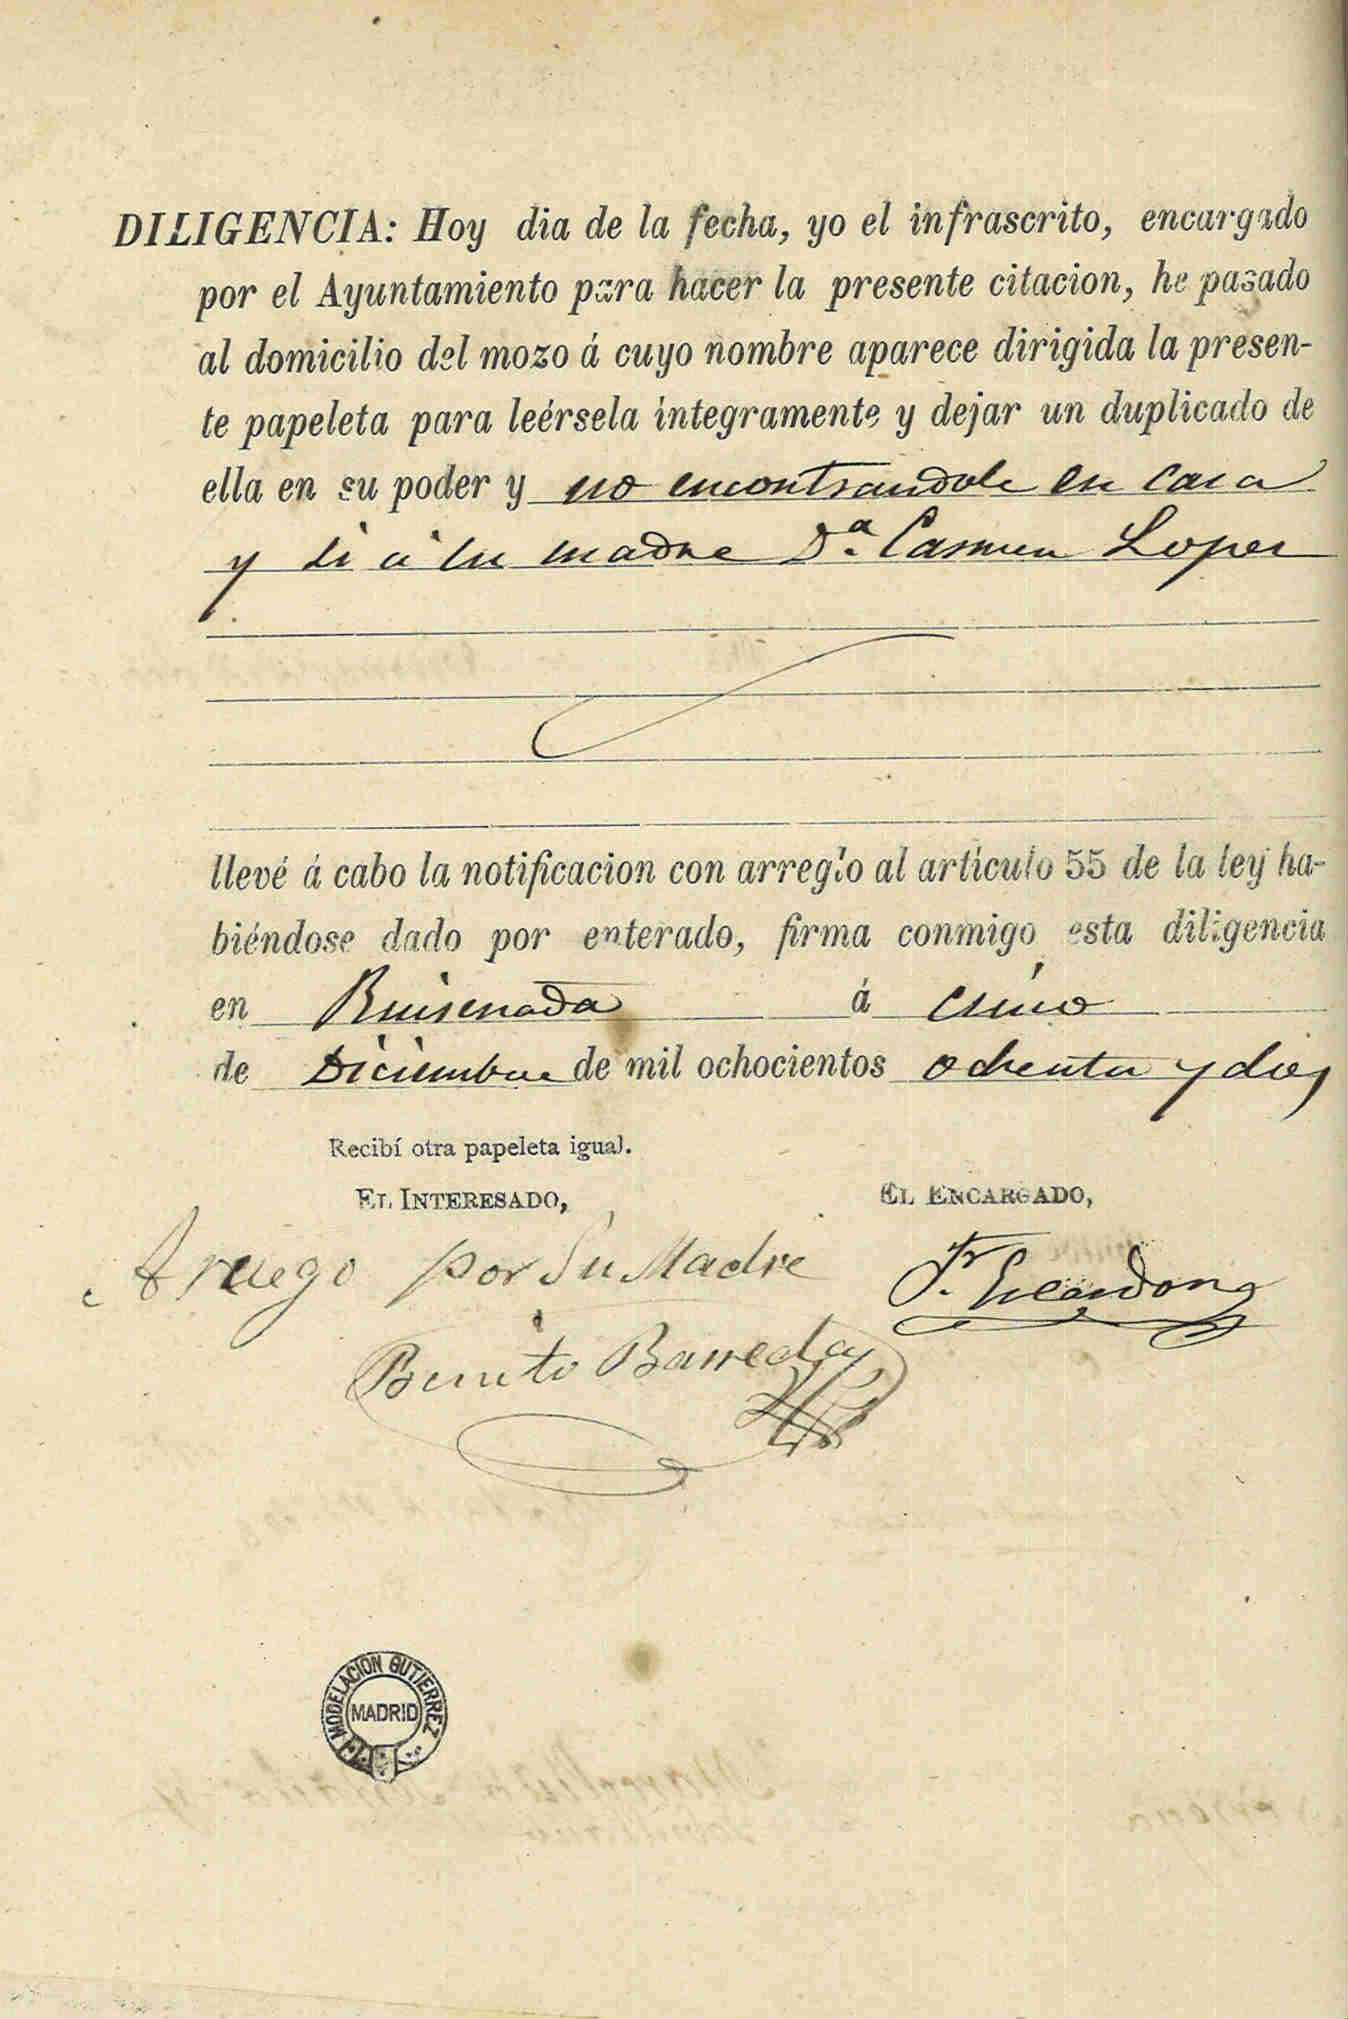 DILIGENCIA: Hoy dia de la fecha, yo el infrascrito, encargado
por el Ayuntamiento para hacer la presente citacion, he pasado
al domicilio del mozo á cuyo nombre aparece dirigida la presen-
te papeleta para leérsela íntegramente y dejar un duplicado de
ella en su poder y no encontrandole en casa
y si á su madre D.ª Carmen Lopez
llevé á cabo la notificacion con arreglo al artículo 55 de la ley ha-
biéndose dado por enterado, firma conmigo esta diligencia
en Ruisenada á cinco
de Diciembre de mil ochocientos ochenta y dos
Recibí otra papeleta igual.
EL INTERESADO,
EL ENCARGADO,
Aruego por Su Madre
F. Escandon
Benito Barreda
MODELACION GUTIERREZ
MADRID